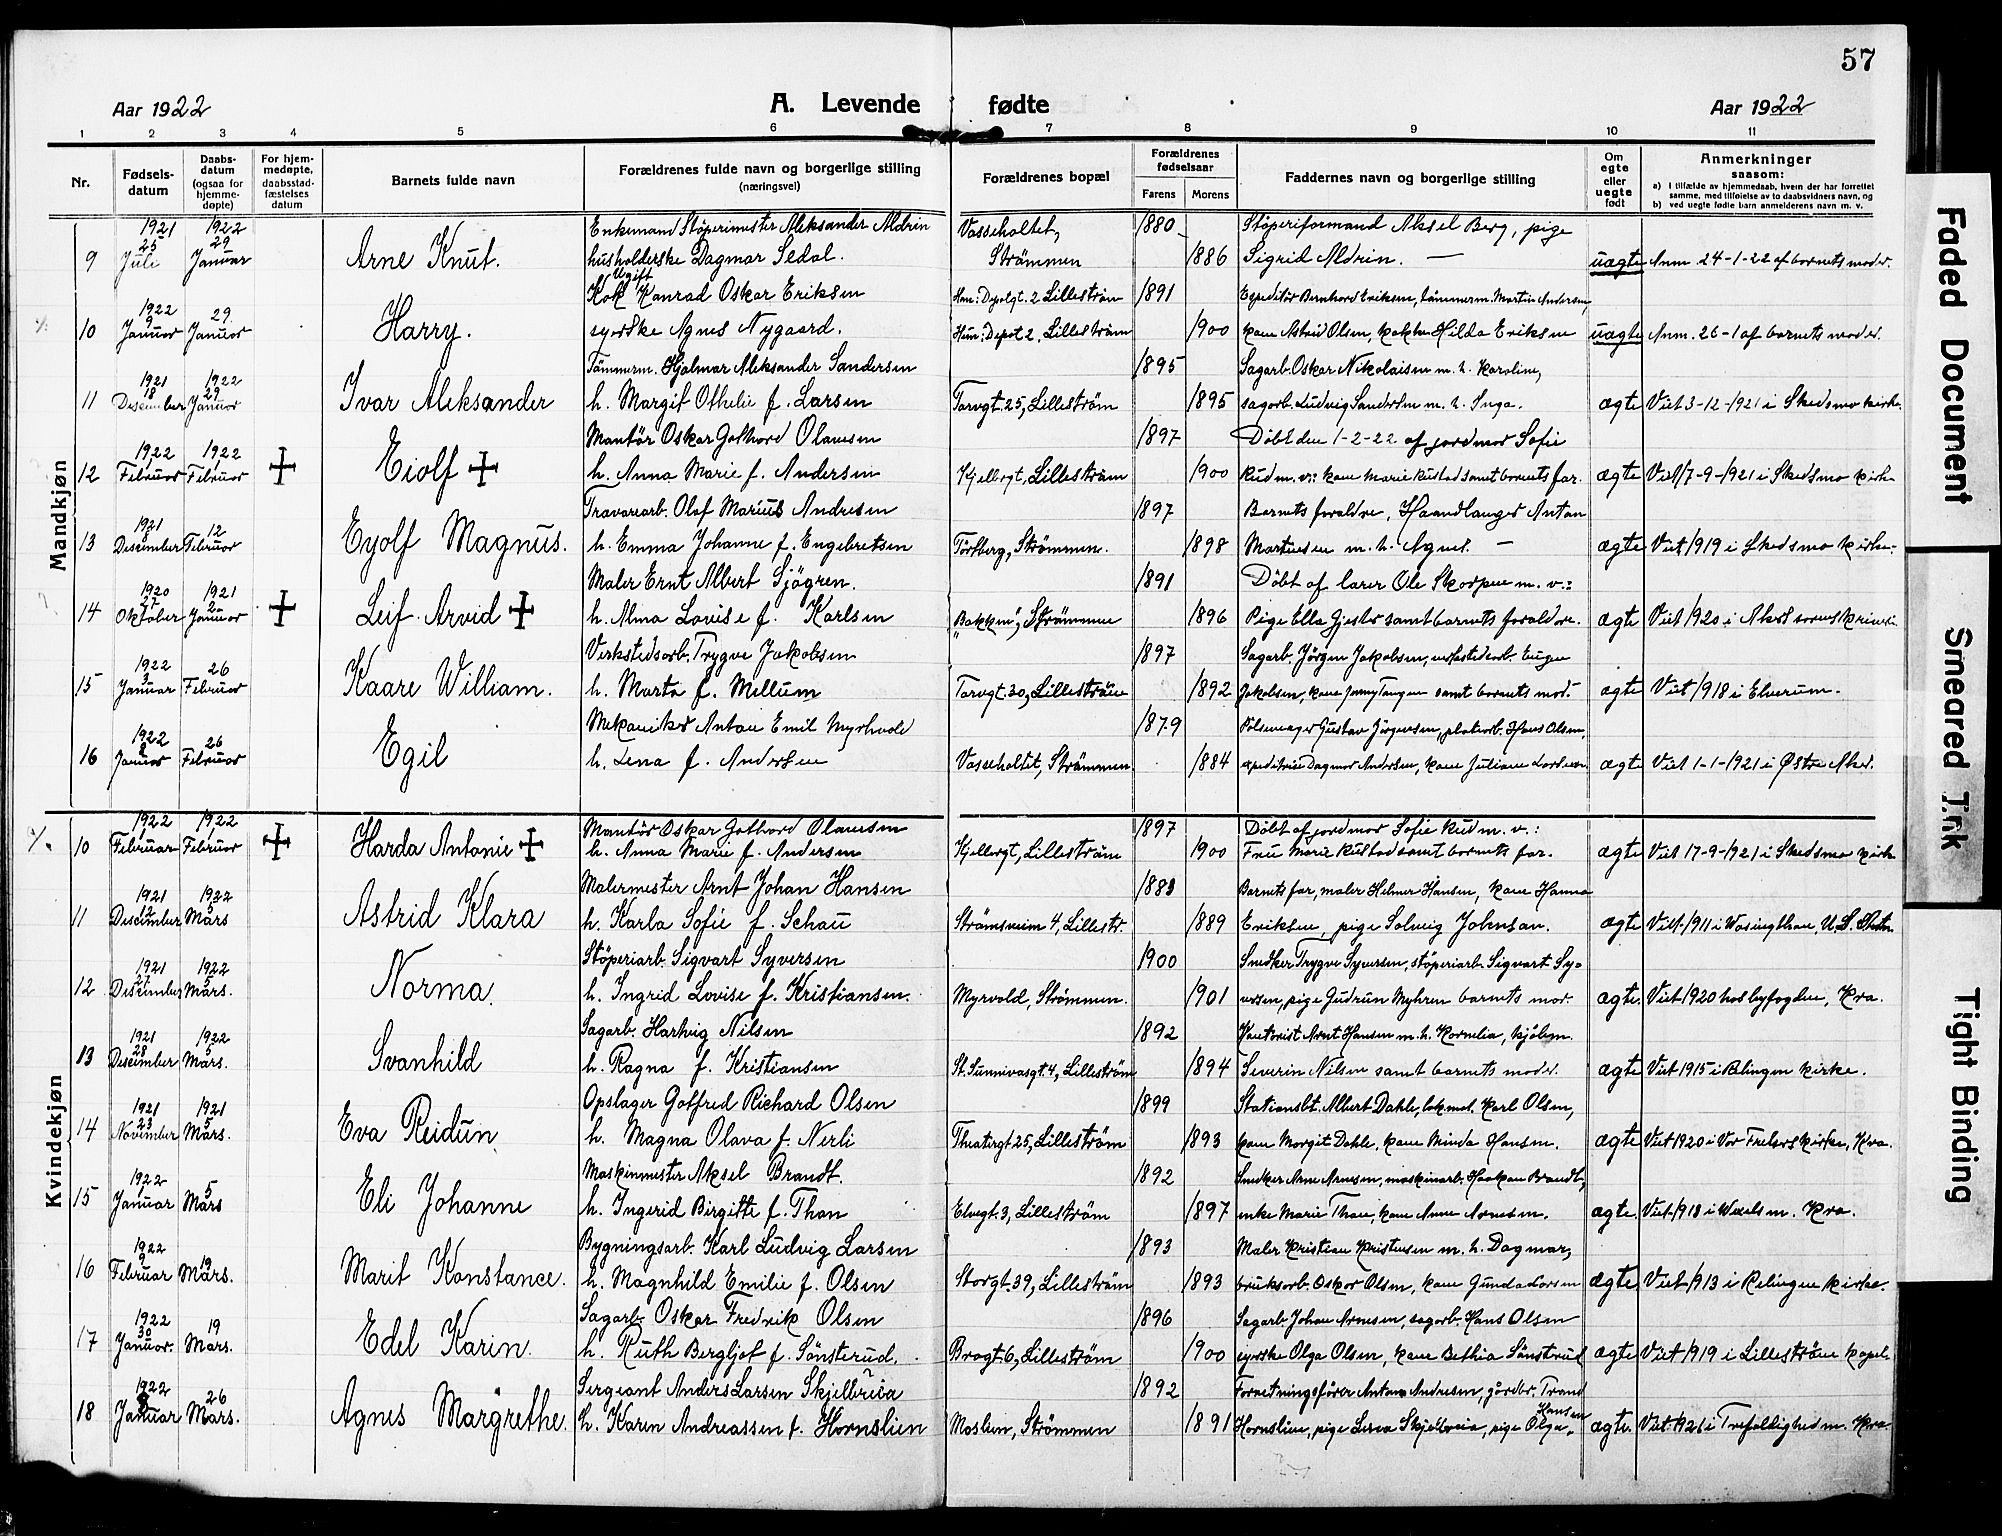 57
Aar 1922
A. Levende fødte
Aar 1922
1 2 3 4 5 6 7 8 9 10 11
Nr.
Fødsels-
datum
Daabs-
datum
(ogsaa for
hjemme-
døpte)
For hjem-
medøpte,
daabsstad-
fæstelses
datum
Barnets fulde navn
Forældrenes fulde navn og borgerlige stilling
(næringsvei)
Forældrenes bopæl
Forældrenes
fødselsaar
Farens Morens
Faddernes navn og borgerlige stilling
Om
egte
eller
uegte
født
Anmerkninger
saasom:
a) i tilfælde av hjemmedaab, hvem der har forrettet
samme, med tilføielse av to daabsvidners navn, og
b) ved uegte fødte barn anmelderens navn m. v.
Mandkjøn
1921 1922 Enkemand Støperimester Aleksander Aldrin Vasseholtet, 1880 Støperiformand Aksel Berg, pige
9 25 Juli 29 Januar Arne Knut. husholderske Dagmar Sedal. Strömmen 1886 Sigrid Aldrin. — uægte Anm 24-1-22 af barnets moder.
1922 Ugift Kok Konrad Oskar Eriksen Han: Depotgt. 2 Lilleström 1891 Expeditör Bernhard Eriksen, tömmerm. Martin Andersen,
10 9 Januar 29. Januar Harry. syerske Agnes Nygaard. Hun: Depot 2, Lilleström 1900 kone Astrid Olsen, Hilda Eriksen uægte Anm. 26-1 af barnets moder.
1921 1922 Tömmerm. Hjalmar Aleksander Sandersen 1895 Sagarb. Oskar Nikolaisen m. h. Karoline,
11 18 Desember 29 Januar Ivar Aleksander h. Margit Othelie f. Larsen Torvgt 25, Lilleström 1895 sagarb. Ludvig Sandersen m. h. Inga. ægte Viet 3-12-1921 i Skedsmo kirke.
1922 1922 Montör Oskar Gothard Olausen 1897 Döbt den 1-2-22 af jordmor Sofie
12 1 Februar 1 Februar Eiolf h. Anna Marie f. Andersen Kjellergt, Lilleström 1900 Rud m. v: kone Marie Rustad samt barnets far. ægte Viet 17-9-1921 i Skedsmo kirke
1921 Travarearb. Olaf Marius Andresen 1897 Barnets foreldre, Haandlanger Anton
13 Desember 12 Februar Eyolf Magnus. h. Emma Johanne f. Engebretsen Törtberg, Strömmen. 1898 Martinsen m. h. Agnes. — ægte Viet 1919 i Skedsmo kirke.
1920 1921 Maler Ernt Albert Sjögren. 1891 Döbt af lærer Ole Skorpen m. v.:
14 27 Oktober 2 Januar Leif Arvid h. Alma Lovise f. Karlsen "Bakken", Strömmen 1896 Pige Ella Gjester samt barnets foreldre. ægte Viet 1920 i
1922 Verkstedsarb. Trygve Jakobsen 1897 Sagarb. Jörgen Jakobsen, verkstedarb. Eugen
15 3 Januar 26 Februar Kaare William. h. Marta f. Mellum Torvgt. 30, Lilleström 1892 Jakobsen, kone Jenny Tangen samt barnets mod. ægte Viet 1918 i Elverum.
1922 Mekaniker Anton Emil Myrhvold 1879 Pölsemager Gustav Jörgensen, platearb. Hans Olsen,
16 8 Januar 26 Februar Egil h. Lena f. Andersen Vasseholtet, Strömmen. 1884 expeditrise Dagmar Andersen, kone Juliane ægte Viet 1-1-1921 i Østre Aker.
Kvindekjøn
1922 1922 Montör Oskar Gothard Olausen 1897 Döbt af jordmor Sofie Rud m. v.:
10 1 Februar 1 Februar Harda Antonie h. Anna Marie f. Andersen Kjellergt, Lilleström 1900 Fru Marie Rustad samt barnets far. ægte Viet 17-9-1921 i Skedsmo kirke
1921 1922 Malermester Arnt Johan Hansen 1881 Barnets far, maler Helmer Hansen, kone Hanna
11 12 Desember 5 Mars Astrid Klara h. Karla Sofie f. Schau Strömsveien 4, Lillestr. 1889 Eriksen, pige Solveig Johnsan. ægte Viet 1911 i Wasingthon, U.S.
1921 1922 Støperiarb. Sigvart Syversen 1900 Snedker Trygve Syversen, støperiarb. Sigvart Sy-
12 27 Desember 5 Mars. Norma. h. Ingrid Lovise f. Kristiansen. Myrvold, Strömmen. 1901 versen, pige Gudrun Myhren barnets mor. ægte. Viet 1920 hos byfogden, Kra.
1921 1922 Sagarb. Hartvig Nilsen 1892 Kontorist Arnt Hansen m. h. Kornelia, kjöbm.
13 28 Desember 5 Mars. Svanhild h. Ragna f. Kristiansen St. Sunnivasgt. 4, Lilleström 1894 Severin Nilsen samt barnets moder. ægte Viet 1915 i Rælingen kirke.
1921 1921 Opslager Gotfred Richard Olsen 1899 Stationsbt. Albert Dahle, lok.mot. Karl Olsen,
14 23 November 5 Mars. Eva Reidun h. Magna Olava f. Nerli Theatergt 25, Lilleström 1893 kone Margit Dahle, kone Minda Hansen. ægte Viet 1920 i Vor Frelsers kirke, Kra.
1922 Maskinmester Aksel Brandt. 1892 Snedker Arne Arnesen, maskinarb. Haakon Brandt,
15 Januar 5 Mars Eli Johanne h. Ingerid Birgitte f. Than Elvegt. 3, Lilleström 1897 enke Marie Than, kone Anna Arnesen. ægte. Viet 1918 i Wexels m. Kra.
1922 Bygningsarb. Karl Ludvig Larsen 1893 Maler Kristian Kristensen m. h. Dagmar,
16 9 Februar 19 Mars. Marit Konstance. h. Magnhild Emilie f. Olsen Storgt. 39, Lilleström 1893 bruksarb. Oskar Olsen, kone Gunda Larsen ægte Viet 1913 i Rælingen kirke.
1922 Sagarb. Oskar Fredrik Olsen 1896 Sagarb. Johan Arnesen, sagarb. Hans Olsen
17 30 Januar. 19 Mars. Edel Karin. h. Ruth Bergljot f. Sönsterud. Brogt 6, Lilleström 1900 syerske Olga Olsen, kone Bethia Sönsterud ægte Viet 1919 i Lilleström kapel.
1922 Sergeant Anders Larsen Skjelbreia 1892 Forretningsförer Anton Andresen, gårdbr. Trond
18 8 Januar 26 Mars. Agnes Margrethe. h. Karen Andreassen f. Hornslien Moslien, Strömmen 1891 Hornslien, pige Lena Skjelbreia, pige Olga Hansen ægte. Viet 1921 i Trefoldighed m. Kra.
Faded Document
Smeared Ink
Tight Binding